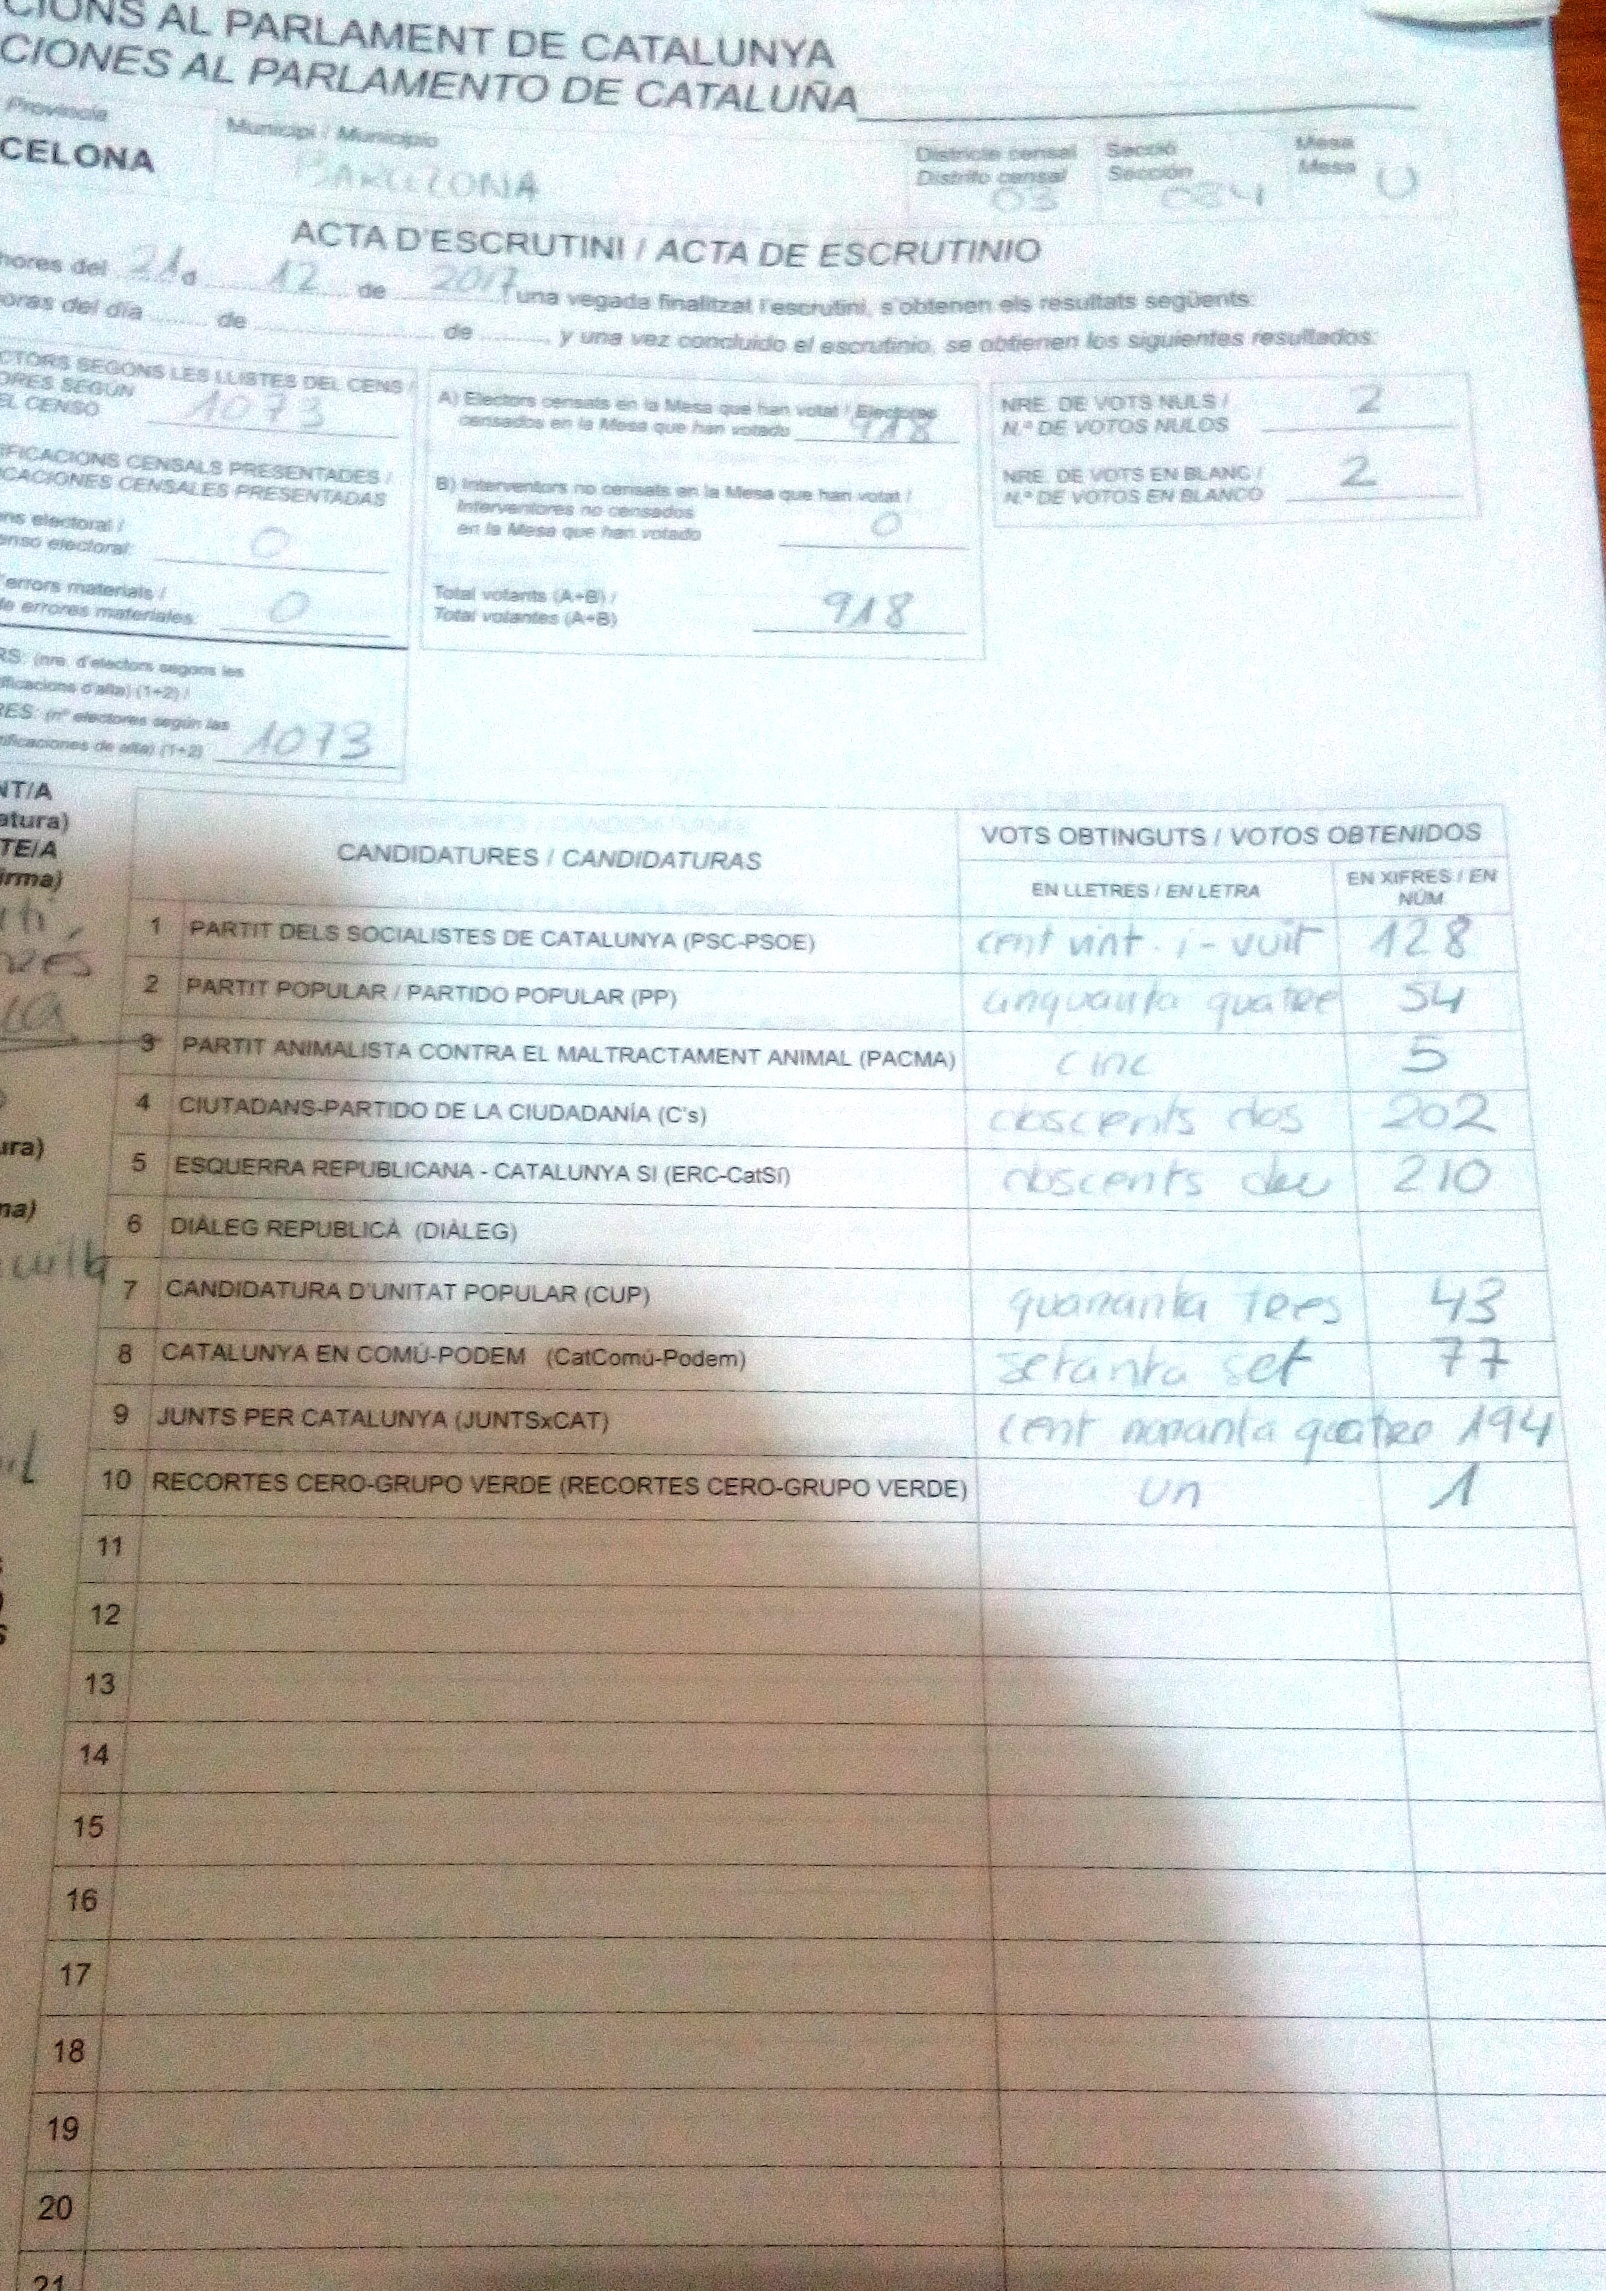 CIONS AL PARLAMENT DE CATALUNYA
CIONES AL PARLAMENTO DE CATALUÑA
Provincia Municipi / Municipio Districte censal Secció Mesa
CELONA BARCELONA Distrito censal 03 Sección 034 Mesa U
ACTA D'ESCRUTINI / ACTA DE ESCRUTINIO
hores del 21 d 12 de 2017, una vegada finalitzat l'escrutini, s'obtenen els resultats següents:
oras del día ........ de .................... de .........., y una vez concluido el escrutinio, se obtienen los siguientes resultados:
CTORS SEGONS LES LLISTES DEL CENS /
ORES SEGÚN
EL CENSO 1073
IFICACIONS CENSALS PRESENTADES /
CACIONES CENSALES PRESENTADAS
ens electoral /
enso electoral: 0
'errors materials /
de errores materiales: 0
RS: (nre. d'electors segons les
ificacions d'alta) (1+2) /
RES: (nº electores según las
tificaciones de alta) (1+2) 1073
A) Electors censats en la Mesa que han votat / Electores
censados en la Mesa que han votado 918
B) Interventors no censats en la Mesa que han votat /
Interventores no censados
en la Mesa que han votado 0
Total votants (A+B) /
Total votantes (A+B) 918
NRE. DE VOTS NULS /
N.º DE VOTOS NULOS 2
NRE. DE VOTS EN BLANC /
N.º DE VOTOS EN BLANCO 2
NT/A
atura)
TE/A
irma)
ura)
ma)
CANDIDATURES / CANDIDATURAS VOTS OBTINGUTS / VOTOS OBTENIDOS
EN LLETRES / EN LETRA EN XIFRES / EN NÚM
1 PARTIT DELS SOCIALISTES DE CATALUNYA (PSC-PSOE) cent vint-i-vuit 128
2 PARTIT POPULAR / PARTIDO POPULAR (PP) cinquanta quatre 54
3 PARTIT ANIMALISTA CONTRA EL MALTRACTAMENT ANIMAL (PACMA) cinc 5
4 CIUTADANS-PARTIDO DE LA CIUDADANÍA (C's) doscents dos 202
5 ESQUERRA REPUBLICANA - CATALUNYA SI (ERC-CatSí) doscents deu 210
6 DIÀLEG REPUBLICÀ (DIÀLEG)
7 CANDIDATURA D'UNITAT POPULAR (CUP) quananta tres 43
8 CATALUNYA EN COMÚ-PODEM (CatComú-Podem) setanta set 77
9 JUNTS PER CATALUNYA (JUNTSxCAT) cent noranta quatre 194
10 RECORTES CERO-GRUPO VERDE (RECORTES CERO-GRUPO VERDE) un 1
11
12
13
14
15
16
17
18
19
20
21